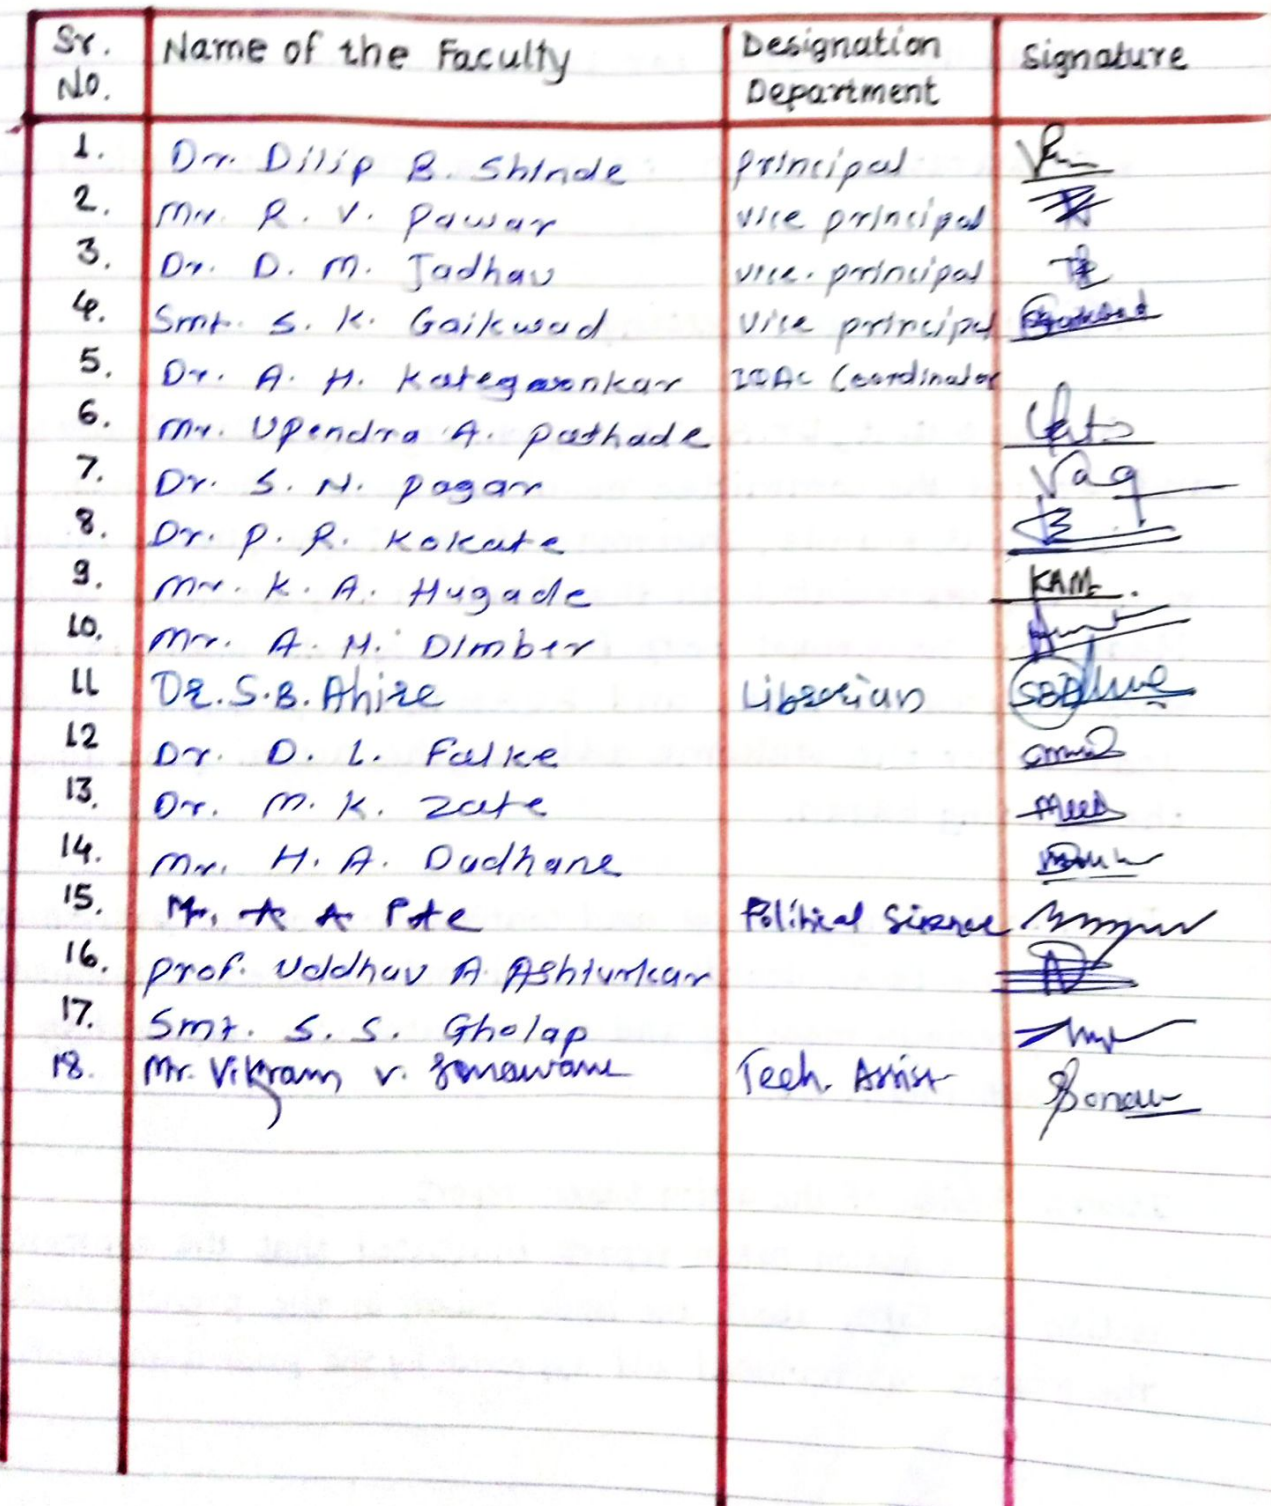 Sr. No. Name of the Faculty Designation Department Signature
1. Dr. Dilip B. Shinde Principal
2. Mr. R. V. Pawar vice principal
3. Dr. D. M. Jadhav vice. principal
4. Smt. S. K. Gaikwad vice principal
5. Dr. A. H. Kategaonkar IQAC Coordinator
6. Mr. Upendra A. Pathade
7. Dr. S. N. Pagar
8. Dr. P. R. Kokate
9. Mr. K. A. Hugade KAM.
10. Mr. A. H. Dimber
11 Dr. S.B. Ahire Librarian
12 Dr. D. L. Falke
13. Dr. M. K. Zate
14. Mr. H. A. Dudhane
15. Mr. A A Pote Political Science
16. Prof. Uddhav A. Ashturkar
17. Smt. S. S. Gholap
18. Mr. Vikram V. Sonawane Tech. Assist